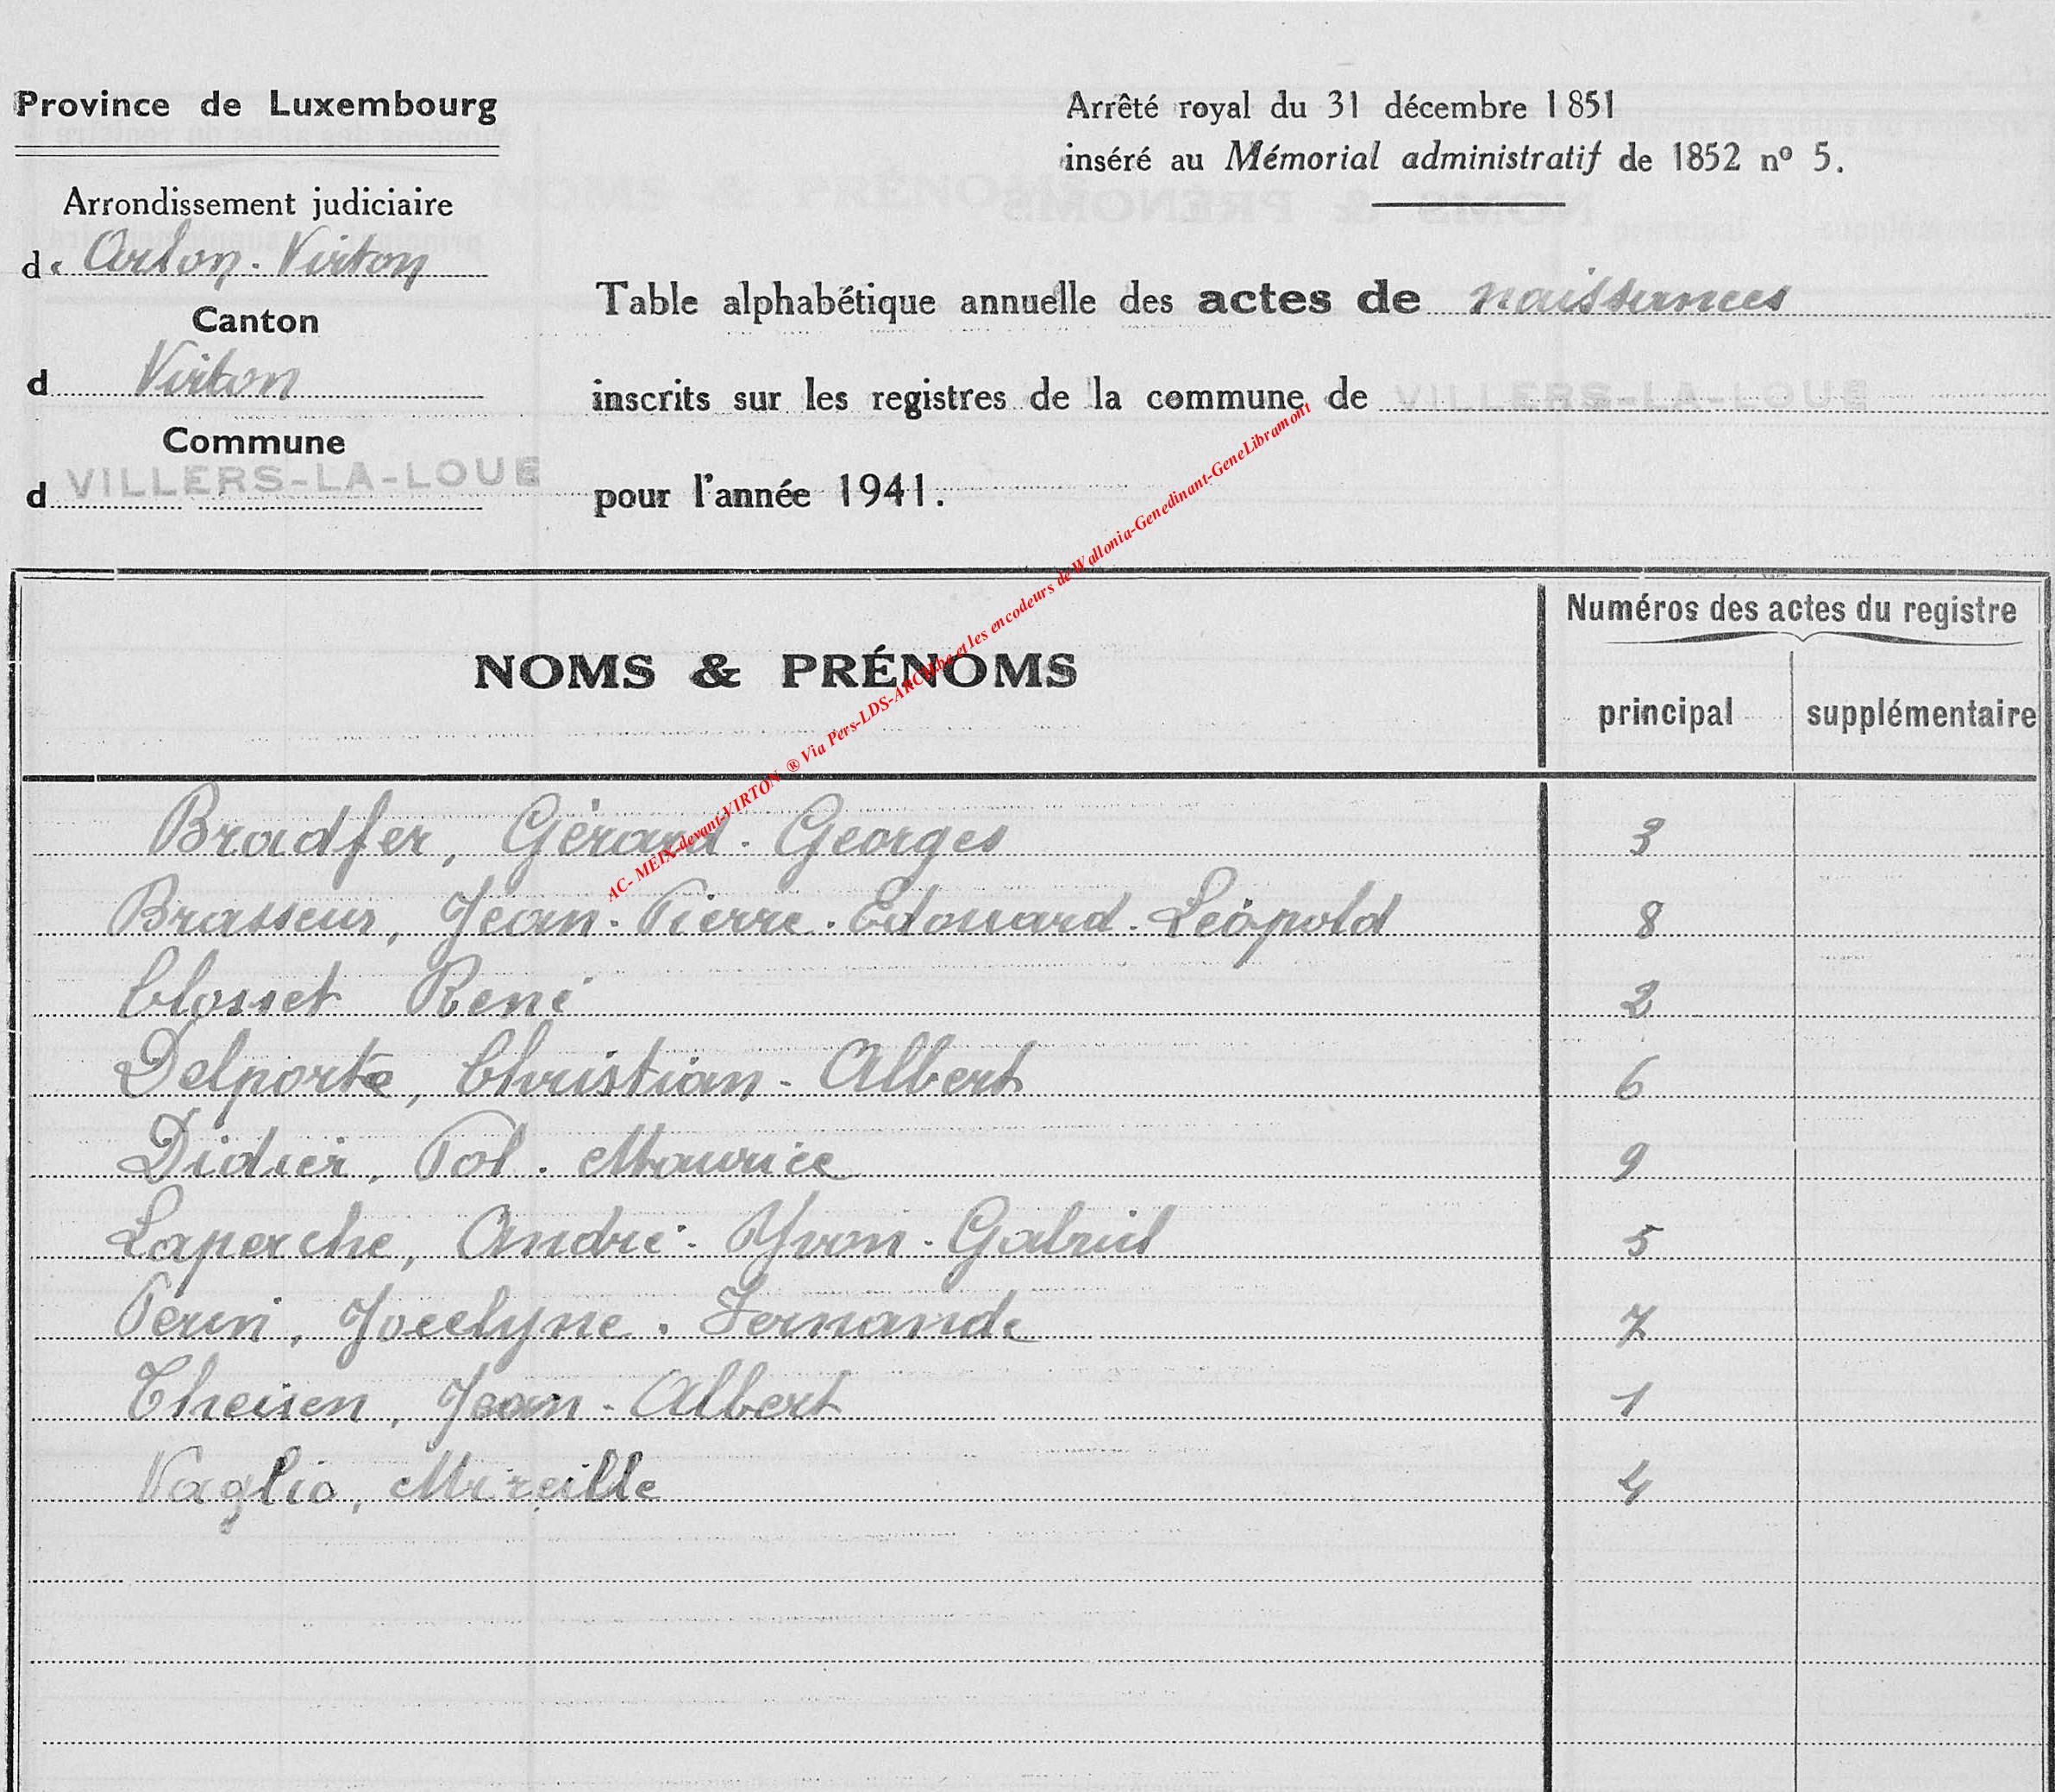 Province de Luxembourg
Arrondissement judiciaire
de Arlon-Virton
Canton
d Virton
Commune
d VILLERS-LA-LOUE
Arrêté royal du 31 décembre 1851
inséré au Mémorial administratif de 1852 nº 5.
Table alphabétique annuelle des actes de naissances
inscrits sur les registres de la commune de VILLERS-LA-LOUE
pour l'année 1941.
NOMS & PRÉNOMS
Numéros des actes du registre
principal supplémentaire
Bradfer, Gérard-Georges 3
Brasseur, Jean-Pierre-Edouard-Léopold 8
Closset René 2
Delporte, Christian-Albert 6
Didier, Pol-Maurice 9
Laperche, André-Yvon-Gabriel 5
Perin, Jocelyne-Fernande 7
Theisen, Jean-Albert 1
Vaglio, Mireille 4
AC- MEIX-devant-VIRTON ® Via Pers-LDS-ARCH.be et les encodeurs de Wallonia-Genedinant-GeneLibramont